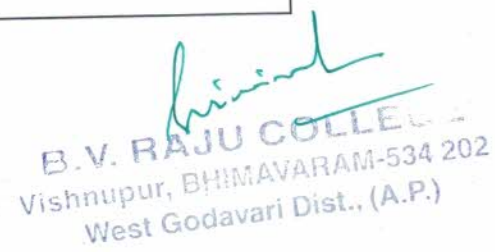 B.V. RAJU COLLE
Vishnupur, BHIMAVARAM-534 202
West Godavari Dist., (A.P.)